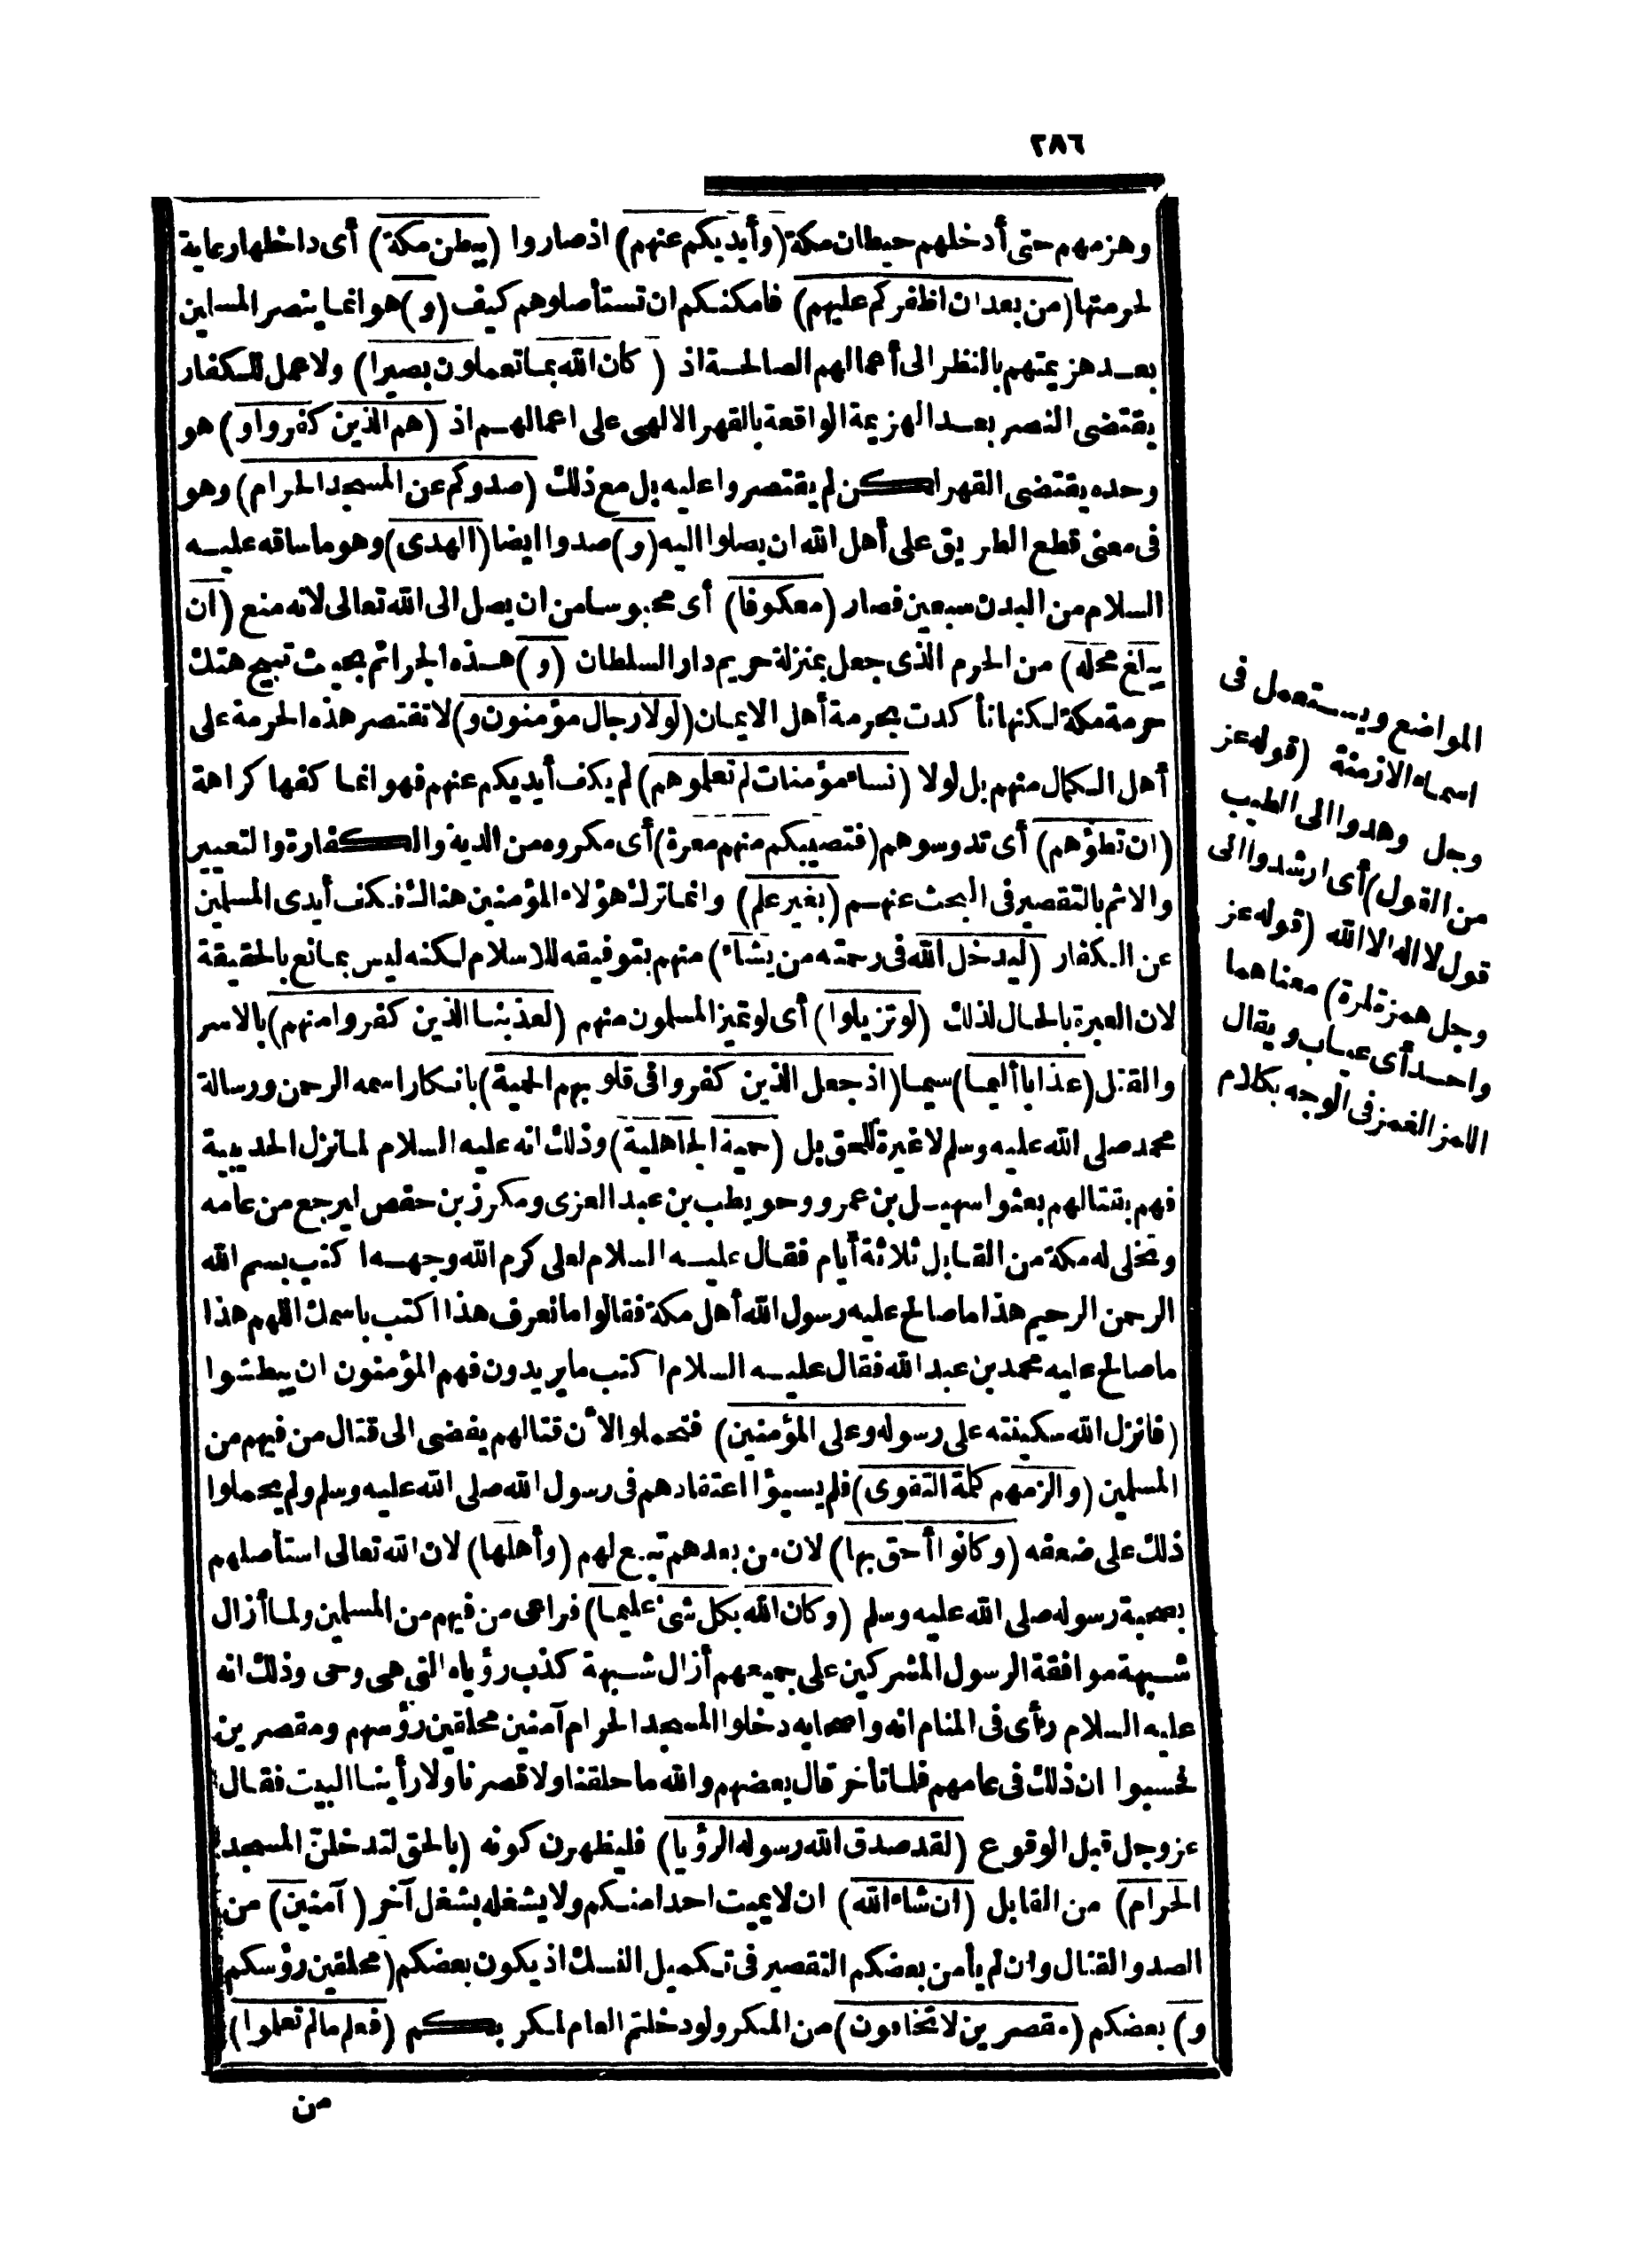 ٢٨٦
وهزمهم حتى أدخلهم حيطان مكة (وأيديكم عنهم) اذ صاروا (ببطن مكة) أى داخلها رعاية
لحرمتها (من بعد ان اظفركم عليهم) فامكنكم ان تستأصلوهم كيف (و) هو انما ينصر المسلمين
بعد هزيمتهم بالنظر الى أعمالهم الصالحة اذ (كان الله بما تعملون بصيرا) ولا عمل للكفار
يقتضى النصر بعد الهزيمة الواقعة بالقهر الالهى على اعمالهم اذ (هم الذين كفروا و) هو
وحده يقتضى القهر لكن لم يقتصروا عليه بل مع ذلك (صدوكم عن المسجد الحرام) وهو
فى معنى قطع الطريق على أهل الله ان يصلوا اليه (و) صدوا ايضا (الهدى) وهو ما ساقه عليه
السلام من البدن سبعين فصار (معكوفا) أى محبوسا من ان يصل الى الله تعالى لانه منع (ان
يبلغ محله) من الحرم الذى جعل بمنزلة حريم دار السلطان (و) هذه الجرائم بحيث تبيح هتك
حرمة مكة لكنها تأكدت بحرمة أهل الايمان (لولا رجال مؤمنون و) لا تقتصر هذه الحرمة على
أهل الكمال منهم بل لولا (نساء مؤمنات لم تعلموهم) لم يكف أيديكم عنهم فهو انما كفها كراهة
(ان تطؤهم) أى تدوسوهم (فتصيبكم منهم معرة) أى مكروه من الدية والكفارة والتعيير
والاثم بالتقصير فى البحث عنهم (بغير علم) وانما ترك هؤلاء المؤمنين هنالك فكف أيدى المسلمين
عن الكفار (ليدخل الله فى رحمته من يشاء) منهم بتوفيقه للاسلام لكنه ليس بمانع بالحقيقة
لان العبرة بالحال لذلك (لو تزيلوا) أى لو تميز المسلمون منهم (لعذبنا الذين كفروا منهم) بالاسر
والقتل (عذابا أليما) سيما (اذ جعل الذين كفروا فى قلوبهم الحمية) بانكار اسمه الرحمن ورسالة
محمد صلى الله عليه وسلم لا غيرة للحق بل (حمية الجاهلية) وذلك انه عليه السلام لما نزل الحديبية
فهم بقتالهم بعثوا سهيل بن عمرو وحويطب بن عبد العزى ومكرز بن حفص ليرجع من عامه
وتخلى له مكة من القابل ثلاثة أيام فقال عليه السلام لعلى كرم الله وجهه اكتب بسم الله
الرحمن الرحيم هذا ما صالح عليه رسول الله أهل مكة فقالوا ما نعرف هذا اكتب باسمك اللهم هذا
ما صالح عليه محمد بن عبد الله فقال عليه السلام اكتب ما يريدون فهم المؤمنون ان يبطشوا
(فانزل الله سكينته على رسوله وعلى المؤمنين) فتحملوا لأن قتالهم يفضى الى قتال من فيهم من
المسلمين (والزمهم كلمة التقوى) فلم يسيؤا اعتقادهم فى رسول الله صلى الله عليه وسلم ولم يحملوا
ذلك على ضعفه (وكانوا أحق بها) لان من بعدهم تبع لهم (وأهلها) لان الله تعالى استأصلهم
بصحبة رسوله صلى الله عليه وسلم (وكان الله بكل شئ عليما) فراعى من فيهم من المسلمين ولما أزال
شبهة موافقة الرسول المشركين على جميعهم أزال شبهة كذب رؤياه التى هى وحى وذلك انه
عليه السلام رأى فى المنام انه واصحابه دخلوا المسجد الحرام آمنين محلقين رؤسهم ومقصرين
فحسبوا ان ذلك فى عامهم فلما تأخر قال بعضهم والله ما حلقنا ولا قصرنا ولا رأينا البيت فقال
عز وجل قبل الوقوع (لقد صدق الله رسوله الرؤيا) فليظهرن كونه (بالحق لتدخلن المسجد
الحرام) من القابل (ان شاء الله) ان لا يميت احدا منكم ولا يشغله بشغل آخر (آمنين) من
الصد والقتال وان لم يأمن بعضكم التقصير فى تكميل النسك اذ يكون بعضكم (محلقين رؤسكم
و) بعضكم (مقصرين لا تخافون) من المكر ولو دخلتم العام لمكر بكم (فعلم ما لم تعلموا)
من
المواضع ويستعمل فى
اسماء الازمنة (قوله عز
وجل وهدوا الى الطيب
من القول) أى ارشدوا الى
قول لا اله الا الله (قوله عز
وجل همزة لمزة) معناهما
واحد أى عياب ويقال
اللمز الغمز فى الوجه بكلام